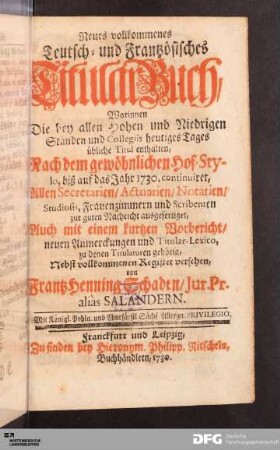 Neues vollkommenes
Teutsch- und Frantzösisches
Titular-Buch,
Worinnen
Die bey allen Hohen und Niedrigen
Ständen und Collegiis heutiges Tages
übliche Titul enthalten,
Nach dem gewöhnlichen Hof-Sty-
lo, biß auf das Jahr 1730. continuiret,
Allen Secretarien/ Actuarien/ Notarien/
Studiosis, Frauenzimmern und Scribenten
zur guten Nachricht ausgefertiget,
Auch mit einem kurtzen Vorbericht/
neuen Anmerckungen und Titular-Lexico,
zu denen Titulaturen gehörig,
Nebst vollkommenen Register versehen,
von
Frantz Henning Schaden/ Jur. Pr.
alias SALANDERN.
Mit Königl. Pohln. und Churfürstl. Sächs. Allergn. PRIVILEGIO.
Franckfurt und Leipzig,
Zu finden bey Hieronym. Philipp. Ritscheln,
Buchhändlern, 1730.
DFG Deutsche
Forschungsgemeinschaft